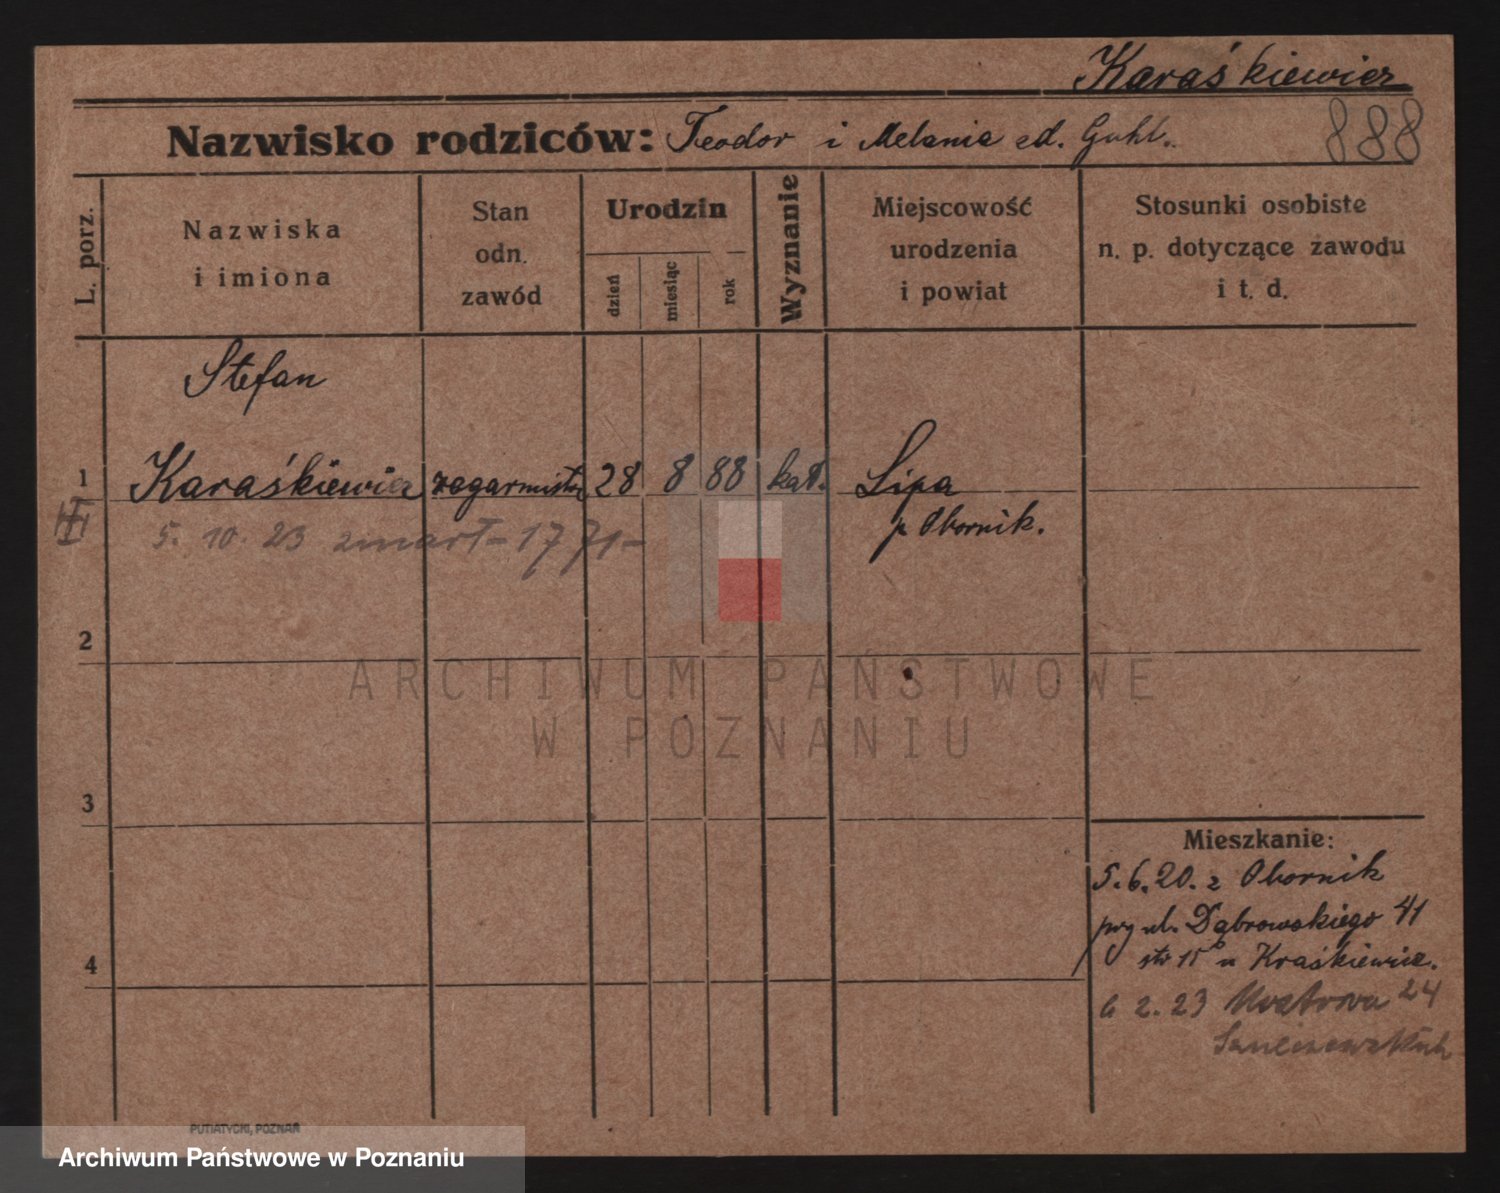 Karaśkiewicz
888
Nazwisko rodziców: Teodor i Melania zd. Guhl.
L. porz.
Nazwiska
i imiona
Stan
odn.
zawód
Urodzin
dzień
miesiąc
rok
Wyznanie
Miejscowość
urodzenia
i powiat
Stosunki osobiste
n. p. dotyczące zawodu
i t. d.
Stefan
1 Karaśkiewicz zegarmistrz 28 8 88 kat. Lipa
p Obornik.
5. 10. 23 zmarł - 1771 -
2
ARCHIWUM PAŃSTWOWE
W POZNANIU
3
Mieszkanie:
5.6.20. z Obornik
przy ul. Dąbrowskiego 41
str 15 u Kraśkiewicz.
4
6 2. 23 24
PUTIATYCKI, POZNAŃ
Archiwum Państwowe w Poznaniu